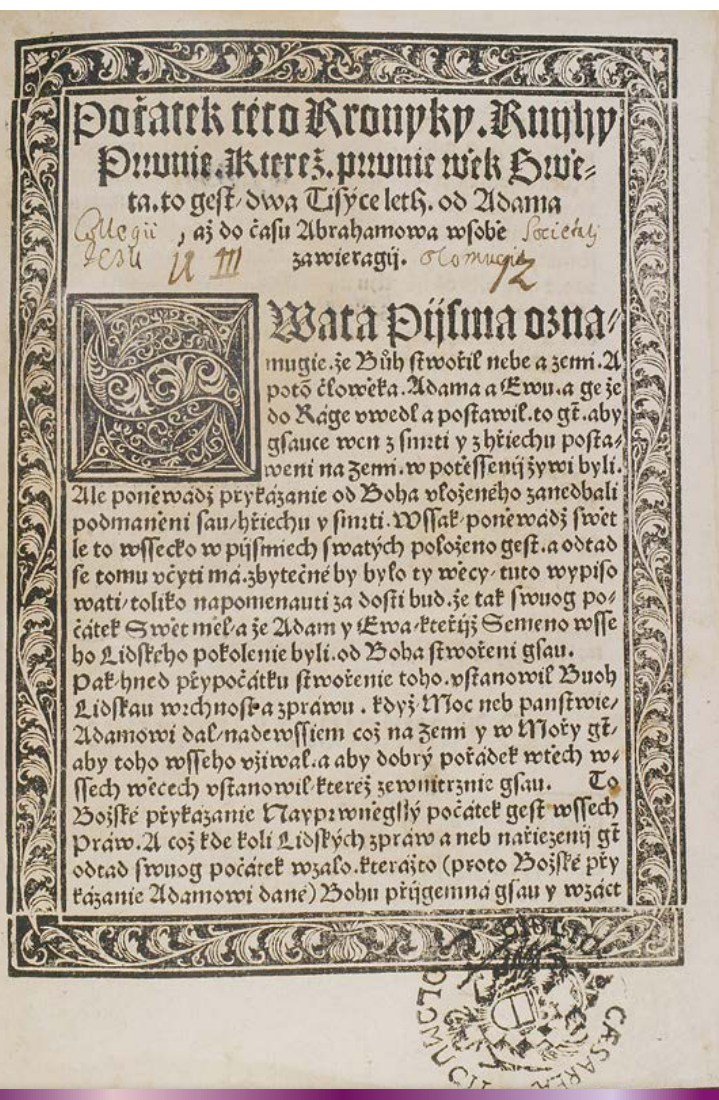 Počátek této Kronyky. Knihy
Prwnie. Kterež. prwnie wěk Swě⸗
ta. to gest/ dwa Tisýce leth. od Adama
Collegii , až do času Abrahamowa w sobě Societatis
Jesu zawieragij. Olomucii
II III 12
SWata Pijsma ozna⸗
mugie. že Bůh stwořil nebe a zemi. A
potō člowěka. Adama a Ewu. a ge že
do Ráge vwedl a postawil. to gt̄. aby
gsauce wen z smrti y z hřiechu posta⸗
weni na Zemi. w potěssenij žywi byli.
Ale poněwadž přykázanie od Boha vloženého zanedbali
podmaněni sau/ hřiechu y smrti. Wssak/ poněwadž swět
le to wssecko w pijsmiech swatých položeno gest. a odtad
se tomu včyti má. zbytečné by bylo ty wěcy/ tuto wypiso
wati/ toliko napomenauti za dosti bud. že tak swuog po⸗
čátek Swět měl/ a že Adam y Ewa/ kteřijž Semeno wsse
ho Lidského pokolenie byli. od Boha stwořeni gsau.
Pak/ hned přypočátku stwořenie toho. vstanowil Buoh
Lidskau wrchnost/ a zpráwu. když/ Moc neb panstwie/
Adamowi dal/ nadewssiem což na Zemi y w Mořy gt̄/
aby toho wsseho vžiwal. a aby dobrý pořádek w těch w⸗
ssech wěcech vstanowil/ kteréž zewnitrznie gsau. To
Božské přykázanie Nayprwněgssý počátek gest wssech
Práw. A což kde koli Lidských zpráw a neb nařiezenij gt̄
odtad swuog počátek wzalo. kterážto (proto Božské přy
kázanie Adamowi dané) Bohu přijgemná gsau y wzáct
BIBLIO CÆSAREA OLOMUCII